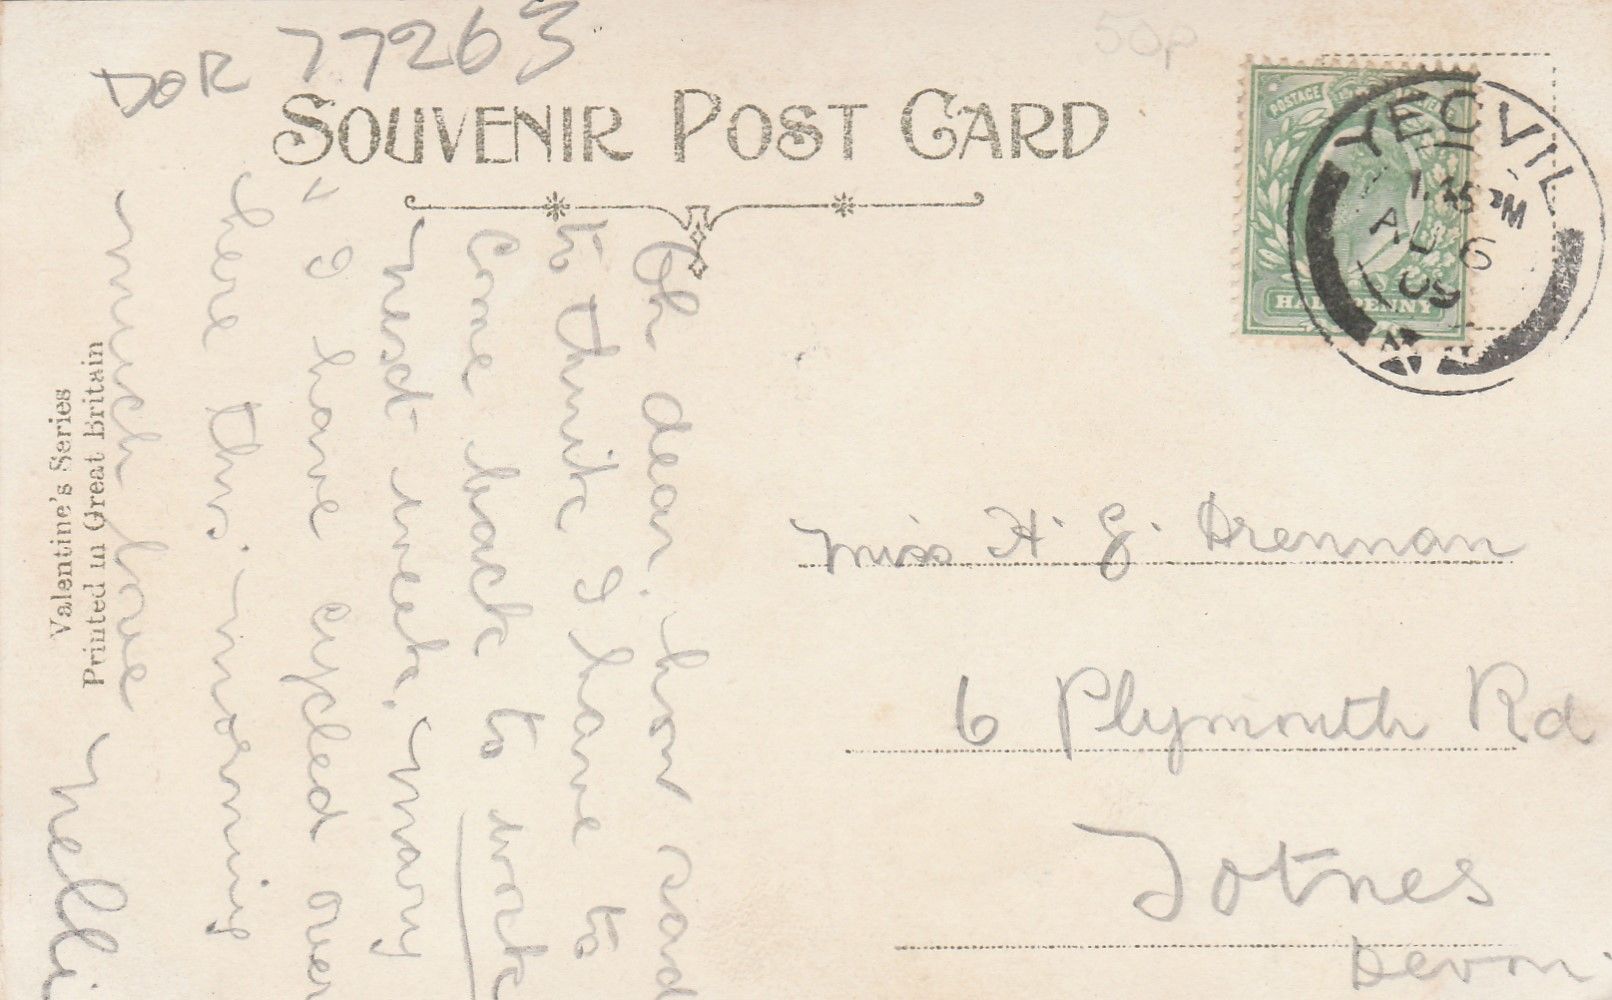 DOR 77263
50p
SOUVENIR POST CARD
POSTAGE
HALFPENNY
YEOVIL
1.45 PM
AU 6
09
Valentine's Series
Printed in Great Britain
Oh dear. how sad
to think I have to
come back to work
next week. Mary
& I have cycled over
here this morning
much love Nelli
Miss H. G. Drennan
6 Plymouth Rd
Totnes
Devon.